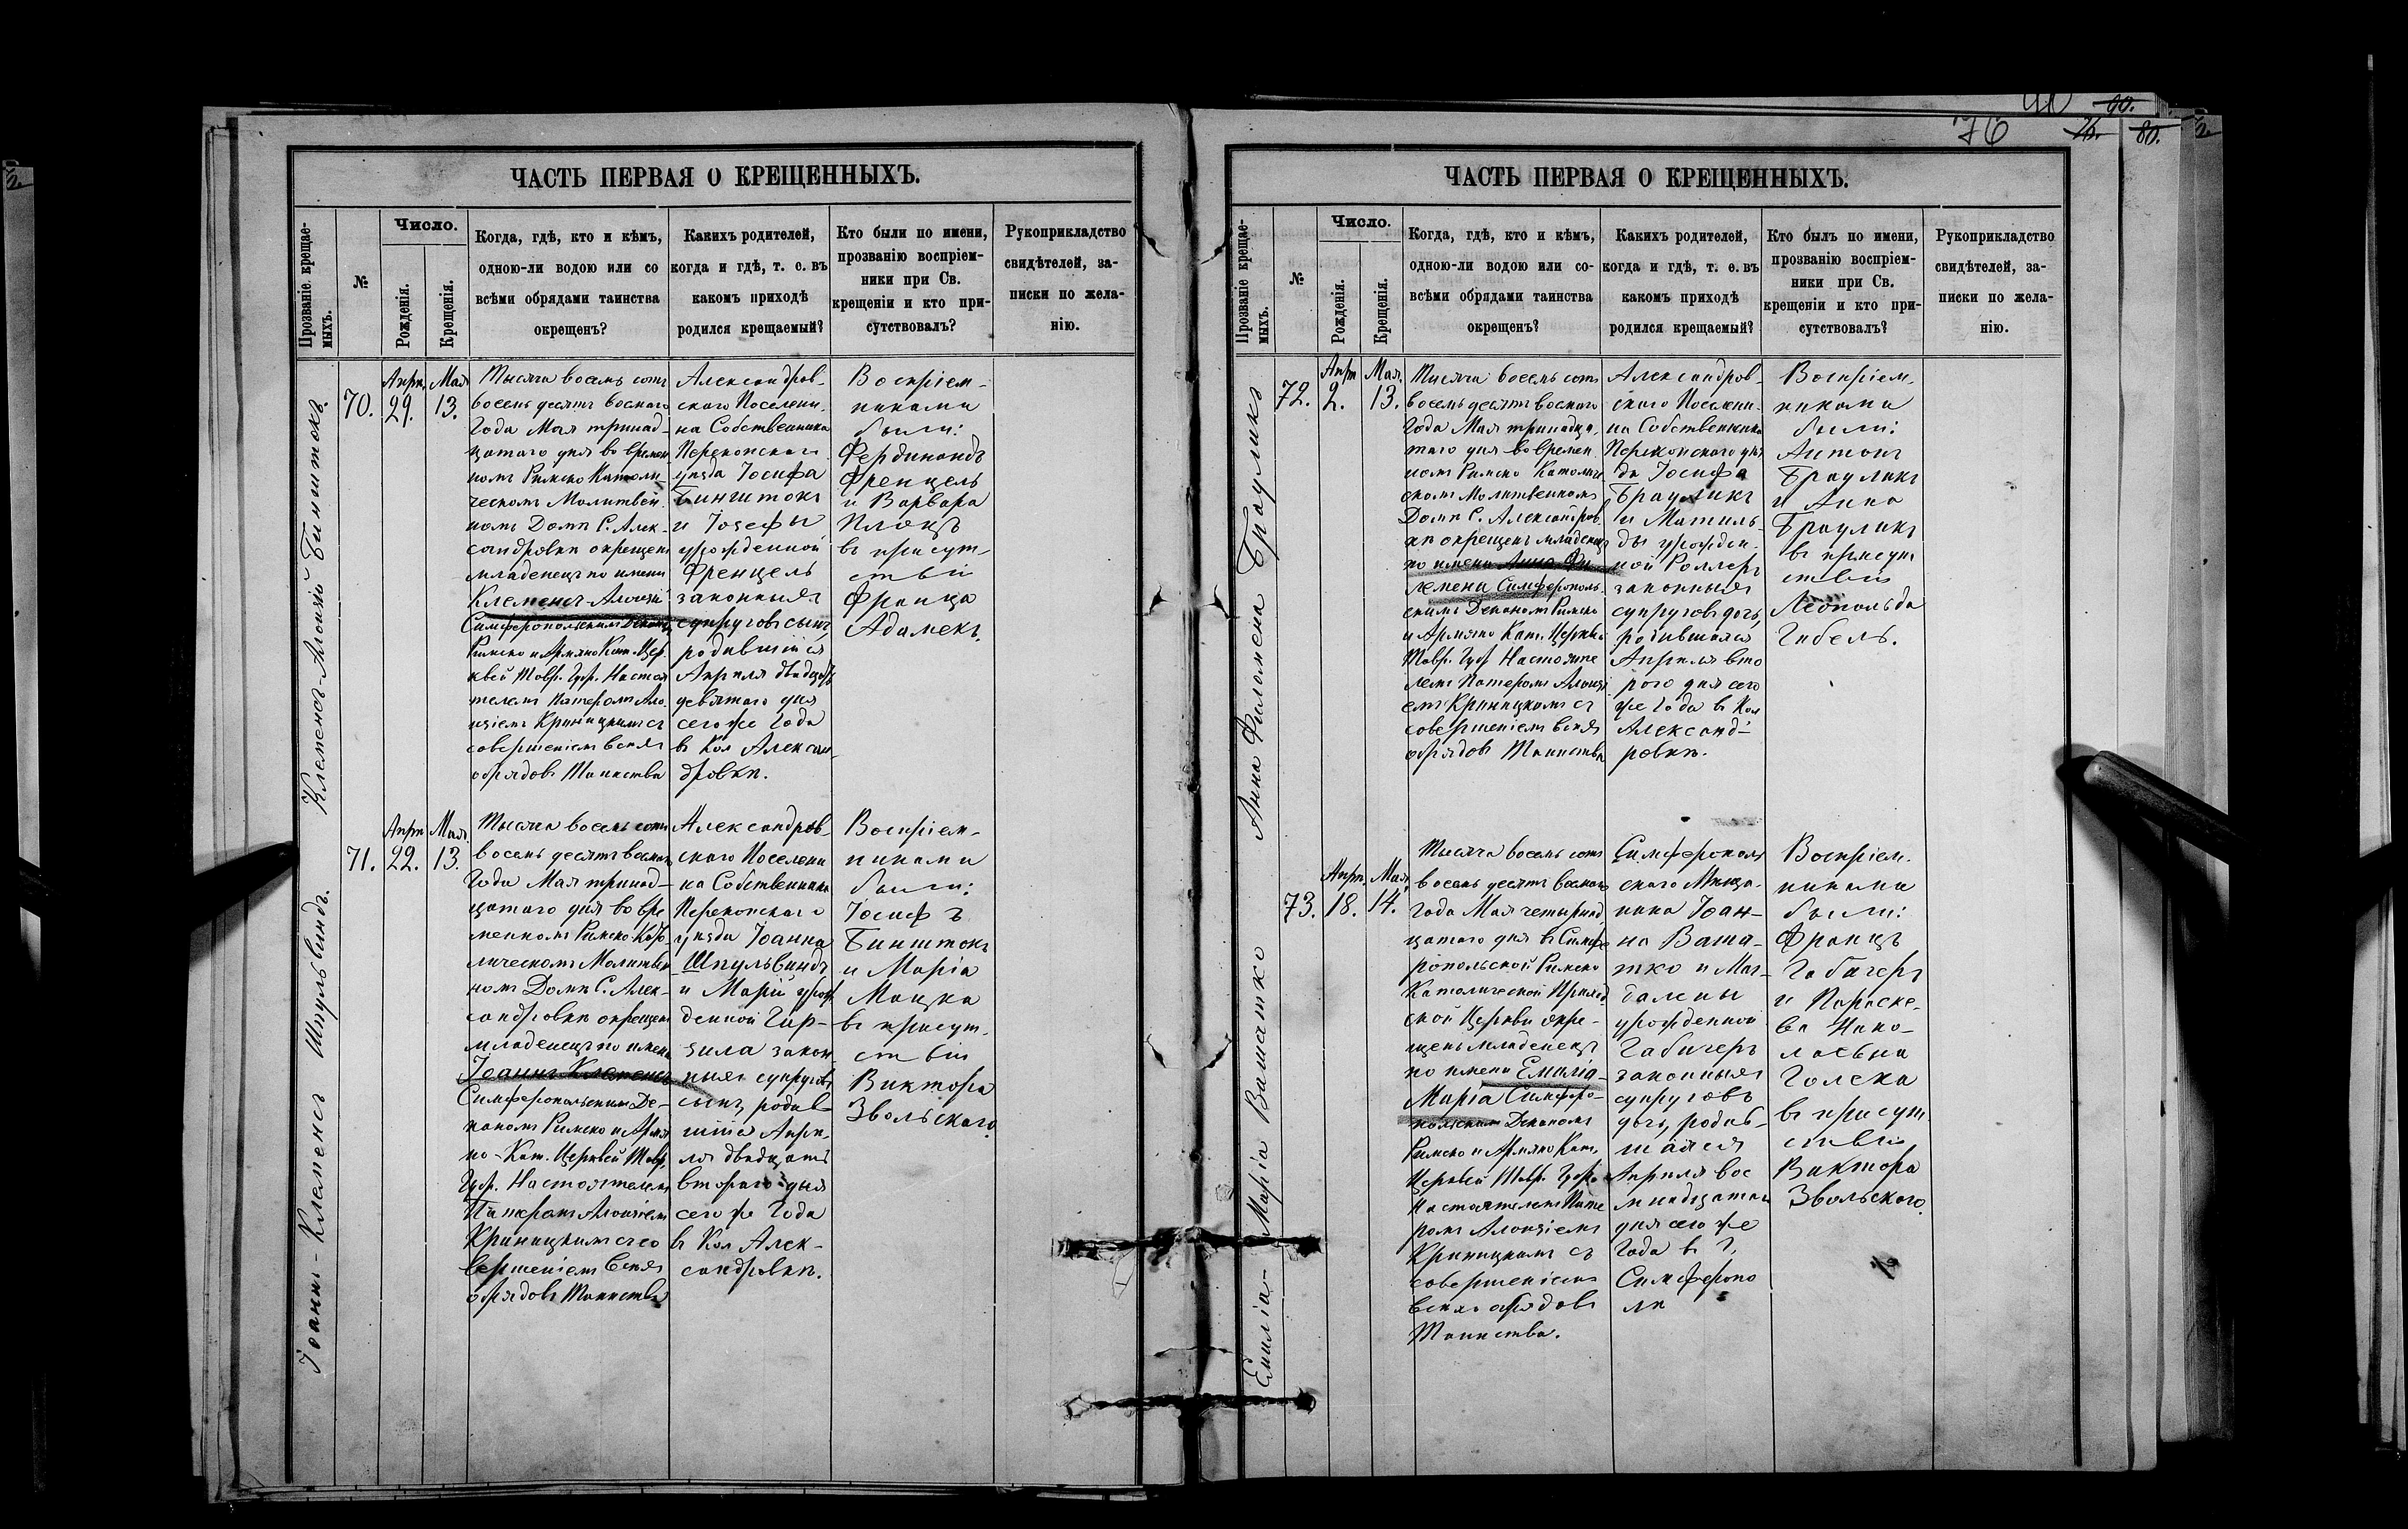 76
76.
80.
ЧАСТЬ ПЕРВАЯ О КРЕЩЕННЫХЪ.
Прозваніе крещае-
мыхъ.
№
Число.
Рожденія.
Крещенія.
Когда, гдѣ, кто и кѣмъ,
одною-ли водою или со
всѣми обрядами таинства
окрещенъ?
Какихъ родителей,
когда и гдѣ, т. е. въ
какомъ приходѣ
родился крещаемый?
Кто были по имени,
прозванію воспріем-
ники при Св.
крещеніи и кто при-
сутствовалъ?
Рукоприкладство
свидѣтелей, за-
писки по жела-
нію.
Клеменсъ-Алоизій Биншток
70.
Апрѣ.
29.
Мая
13.
Тысяча восемь сотъ
восемь десятъ восмого
Года Мая тринад-
цатаго дня во времен
номъ Римско Католи-
ческомъ Молитвен
номъ Домѣ С. Алек-
сандровкѣ окрещенъ
младенецъ по имени
Клеменсъ-Алоизій
Симферопольскимъ Деканомъ
Римско и Армяно Кат. Цер
квей Тавр. Губ. Настоя
телемъ Патеромъ Ало
изіемъ Криницкимъ съ
совершеніемъ всѣхъ
обрядовъ Таинства
Александров-
скаго Поселени-
на Собственника
Перекопскаго
уѣзда Іосифа
Бинштокъ
и Іозефы
урожденной
Френцель
законныхъ
супруговъ сынъ,
родившійся
Апрѣля двадцать
девятаго дня
сего же Года
въ Кол Алексан-
дровкѣ.
Воспріем-
никами
были:
Фердинандъ
Френцель
и Варвара
Плоцъ
въ присут-
ствіи
Франца
Адамекъ.
Іоаннъ-Клеменсъ Шпульвиндъ.
71.
Апрѣ
22.
Мая
13.
Тысяча восемь сотъ
восемь десятъ восмого
Года Мая тринад-
цатаго дня во вре
менномъ Римско-Като
лическомъ Молитвен
номъ Домѣ С. Алек-
сандровкѣ окрещенъ
младенецъ по имени
Іоаннъ Клеменсъ
Симферопольскимъ Де-
каномъ Римско и Армя
но-Кат. Церквей Тавр.
Губ. Настоятелемъ
Патеромъ Алоизіемъ
Криницкимъ съ со
вершеніемъ всѣхъ
обрядовъ Таинства
Александров-
скаго Поселени
на Собственника
Перекопскаго
уѣзда Іоанна
Шпульвиндъ
и Маріи урож
денной Гир-
зила закон
ныхъ супруговъ
сынъ, родив-
шійся Апрѣ-
ля двадцать
втораго дня
сего же Года
въ Кол Алек-
сандровкѣ.
Воспріем-
никами
были:
Іосифъ
Бинштокъ
и Марія
Мацка
въ присут-
ствіи
Виктора
Звольскаго.
ЧАСТЬ ПЕРВАЯ О КРЕЩЕННЫХЪ.
Прозваніе крещае-
мыхъ.
№
Число.
Рожденія.
Крещенія.
Когда, гдѣ, кто и кѣмъ,
одною-ли водою или со-
всѣми обрядами таинства
окрещенъ?
Какихъ родителей,
когда и гдѣ, т. е. въ
какомъ приходѣ
родился крещаемый?
Кто былъ по имени,
прозванію воспріем-
ники при Св.
крещеніи и кто при-
сутствовалъ?
Рукоприкладство
свидѣтелей, за-
писки по жела-
нію.
Анна Филомена Брауликъ
72.
Апрѣ
2.
Мая.
13.
Тысяча восемь сотъ
восемь десятъ восмого
Года Мая тринадца-
таго дня во времен
номъ Римско Католиче
скомъ Молитвенномъ
Домѣ С. Александров
кѣ окрещенъ младенецъ
по имени Анна Фи
лемена Симферополь-
скимъ Деканомъ Римско
и Армяно Кат. Церквей
Тавр. Губ Настояте
лемъ Патеромъ Алоизі
емъ Криницкимъ съ
совершеніемъ всѣхъ
обрядовъ Таинства
Александров-
скаго Поселени-
на Собственника
Перекопскаго уѣз
да Іосифа
Брауликъ
и Матиль-
ды урожден-
ной Роллеръ
законныхъ
супруговъ дочь,
родившаяся
Апрѣля вто
рого дня сего
же Года въ Кол
Александ-
ровкѣ.
Воспріем-
никами
были:
Антонъ
Брауликъ
и Анна
Брауликъ
въ присут
ствіи
Леопольда
Гибель.
Емилія-Марія Ваматко
73.
Апрѣ.
18.
Мая.
14.
Тысяча восемь сотъ
восемь десятъ восмого
Года Мая четырнад
цатаго дня въ Симфе
ропольской Римско
Католической Приход
ской Церкви окре-
щенъ младенецъ
по имени Емилія-
Марія Симферо-
польскимъ Деканомъ
Римско и Армяно Кат.
Церквей Тавр. Губ.
Настоятелемъ Пате
ромъ Алоизіемъ
Криницкимъ съ
совершеніемъ
всѣхъ обрядовъ
Таинства.
Симферополь
скаго Мѣща-
нина Іоан-
на Вама-
тко и Маг-
далены
урожденной
Габигеръ
законныхъ
супруговъ
дочь, родив-
шаяся
Апрѣля вос
мнадцатаго
дня сего же
Года въ Г.
Симферопо
лѣ
Воспріем-
никами
были:
Францъ
Габигеръ
и Параске-
ва Нико-
лаевна
Голека
въ присут
ствіи
Виктора
Звольскаго.